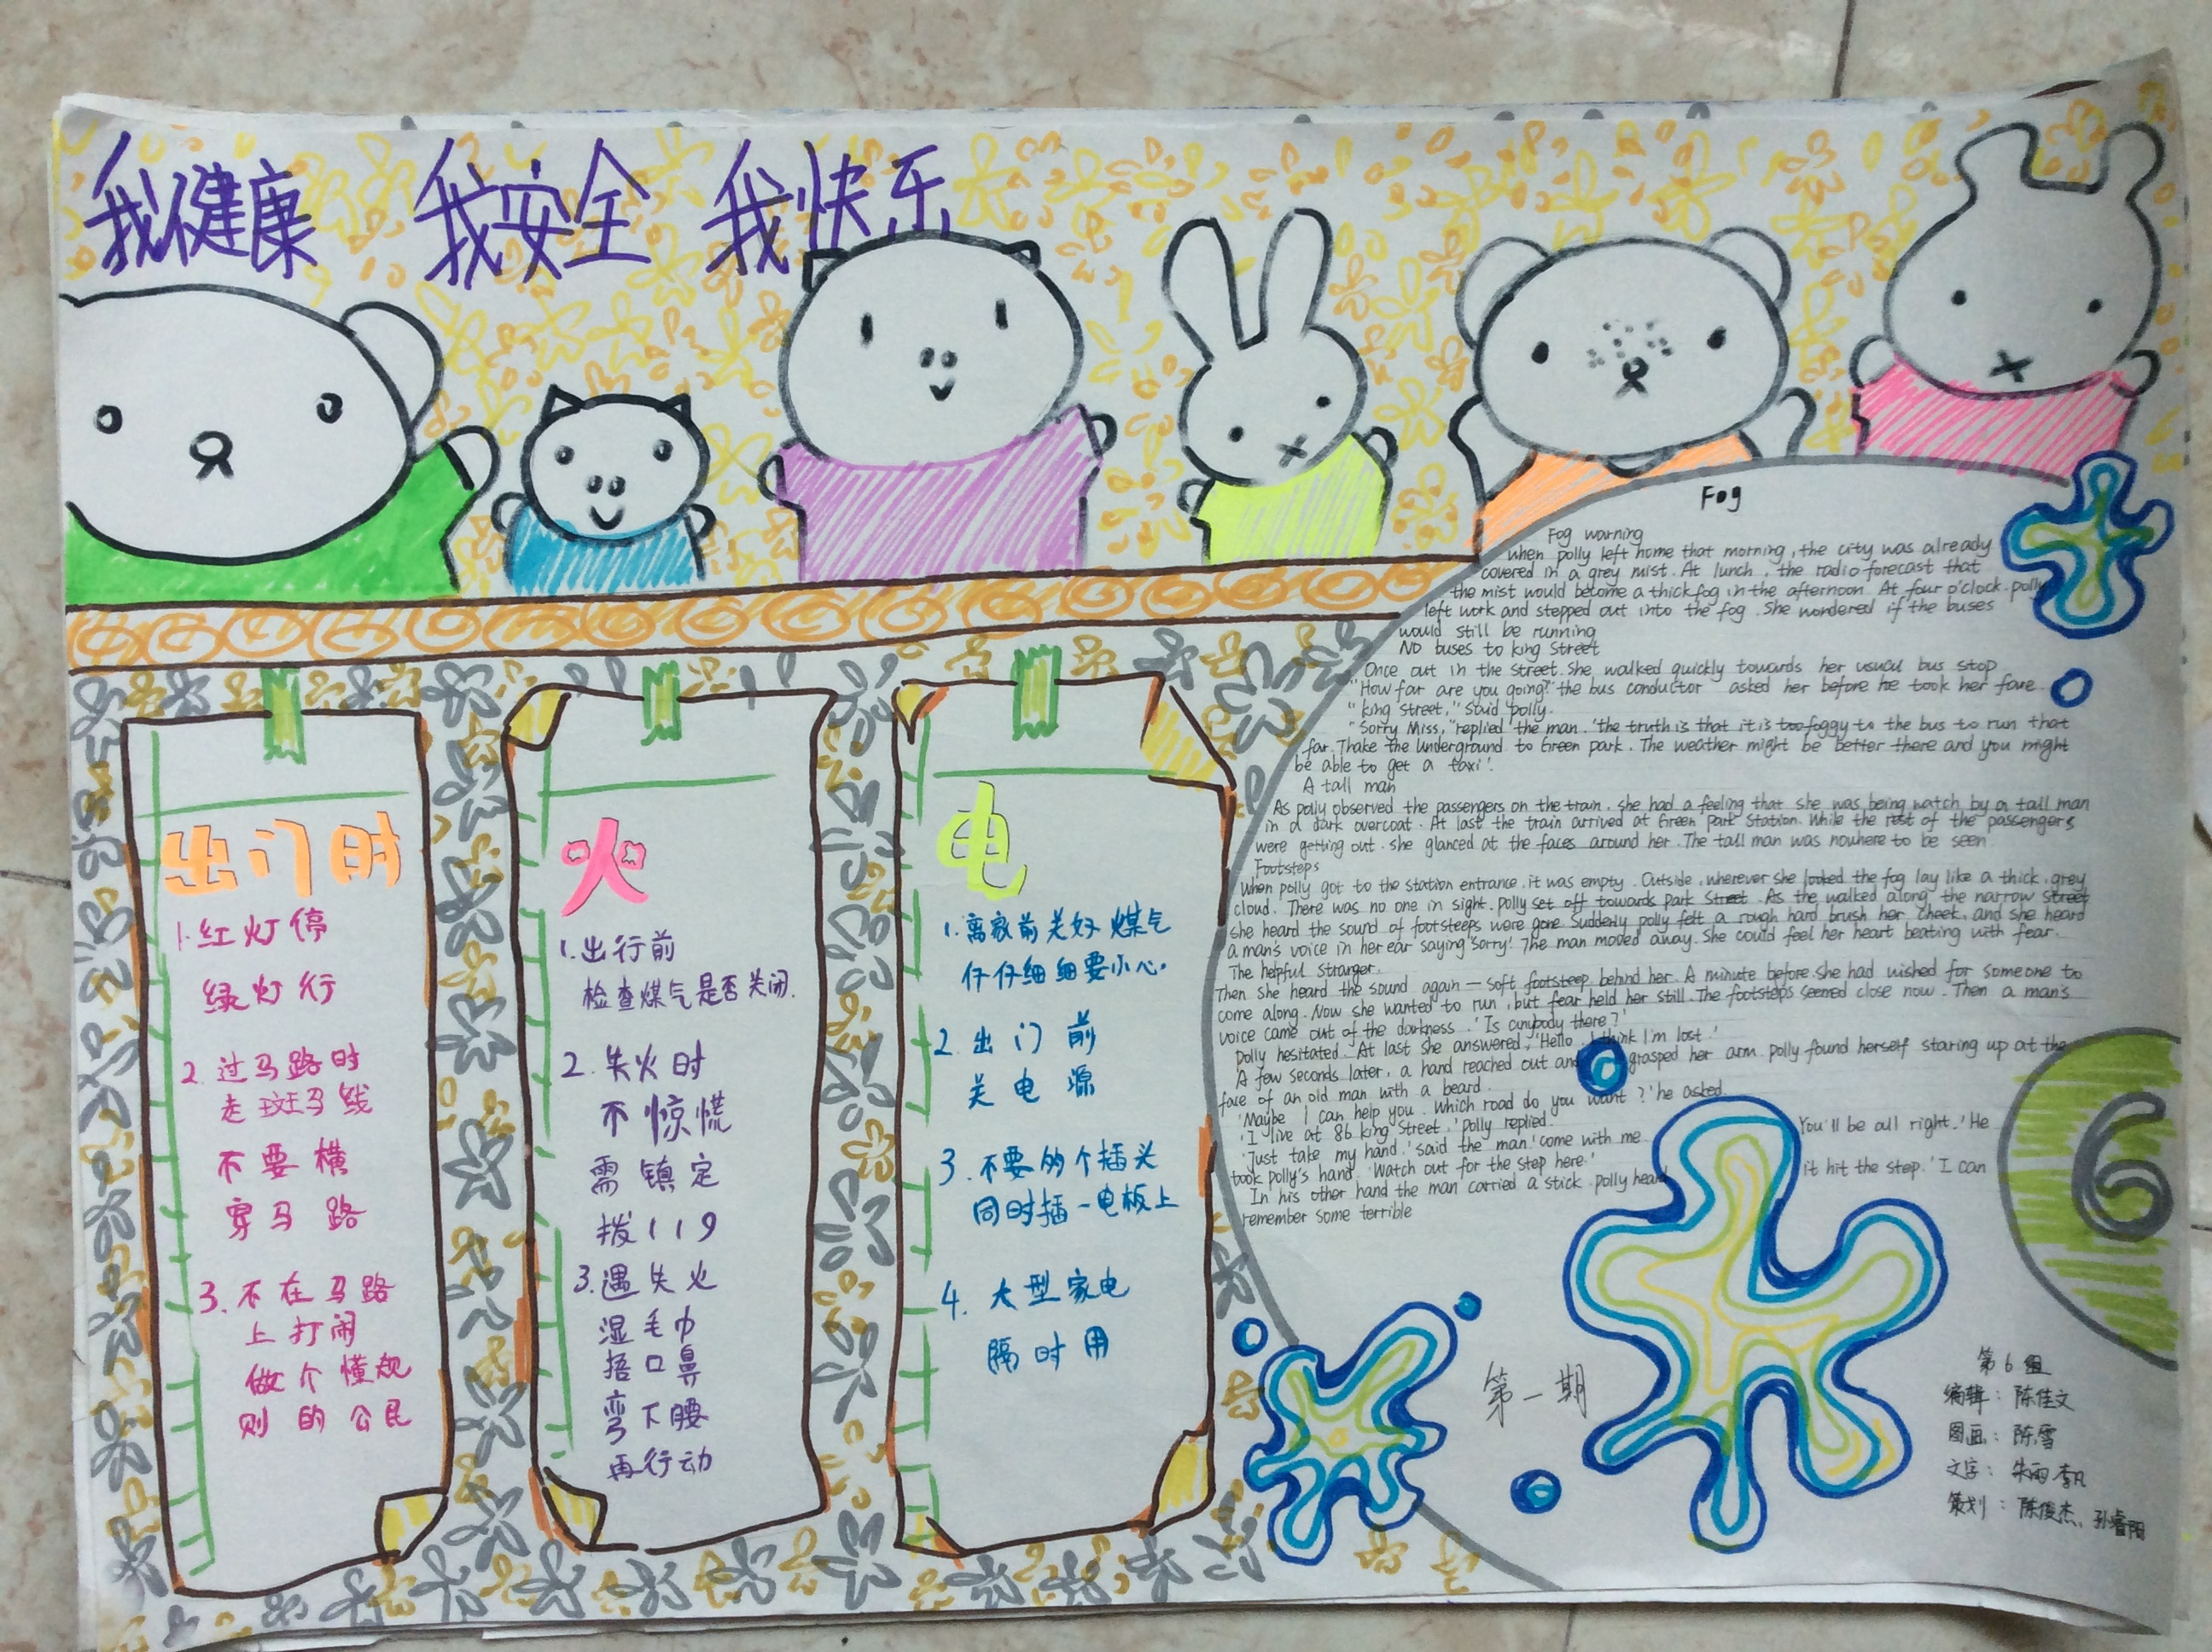 我健康 我安全 我快乐
出门时
1.红灯停
绿灯行
2.过马路时
走斑马线
不要横
穿马路
3.不在马路
上打闹
做个懂规
则的公民
火
1.出行前
检查煤气是否关闭.
2.失火时
不惊慌
需镇定
拨119
3.遇失火
湿毛巾
捂口鼻
弯下腰
再行动
电
1.离家前关好煤气
仔仔细细要小心.
2.出门前
关电源
3.不要多个插头
同时插一电板上
4.大型家电
隔时用
Fog
Fog warning
when polly left home that morning, the city was already
covered in a grey mist. At lunch, the radio forecast that
the mist would become a thick fog in the afternoon. At four o'clock. polly
left work and stepped out into the fog. She wondered if the buses
would still be running
No buses to king street
Once out in the street. She walked quickly towards her usual bus stop
"How far are you going?" the bus conductor asked her before he took her fare.
"king street," said polly.
"Sorry Miss," replied the man. 'the truth is that it is too foggy to the bus to run that
far. Thake the Underground to Green park. The weather might be better there and you might
be able to get a taxi'.
A tall man
As polly observed the passengers on the train, she had a feeling that she was being watch by a tall man
in a dark overcoat. At last the train arrived at Green Park Station. While the rest of the passengers
were getting out. she glanced at the faces around her. The tall man was nowhere to be seen
Footsteps
When polly got to the station entrance, it was empty. Outside, wherever she looked the fog lay like a thick, grey
cloud. There was no one in sight. polly set off towards Park Street. As the walked along the narrow street
she heard the sound of footsteeps were gone. Suddenly polly felt a rough hard brush her cheek, and she heard
a man's voice in her ear saying 'sorry!' The man moved away. She could feel her heart beating with fear.
The helpful stranger.
Then she heard the sound again — soft footsteep behind her. A minute before, she had wished for someone to
come along. Now she wanted to run, but fear held her still. The footsteps seemed close now. Then a man's
voice came out of the darkness. 'Is anybody there?'
polly hesitated. At last she answered, 'Hello, I think I'm lost.'
A few seconds later, a hand reached out and grasped her arm. polly found herself staring up at the
face of an old man with a beard.
'Maybe I can help you. Which road do you want?' he asked.
'I live at 86 king Street.' polly replied.
'Just take my hand,' said the man 'come with me. You'll be all right.' He
took polly's hand. 'Watch out for the step here.'
In his other hand the man carried a stick. polly heard it hit the step. 'I can
remember some terrible
6
第一期
第6组
编辑：陈佳文
图画：陈雪
文字：朱雨 李凡
策划：陈俊杰、孙睿阳